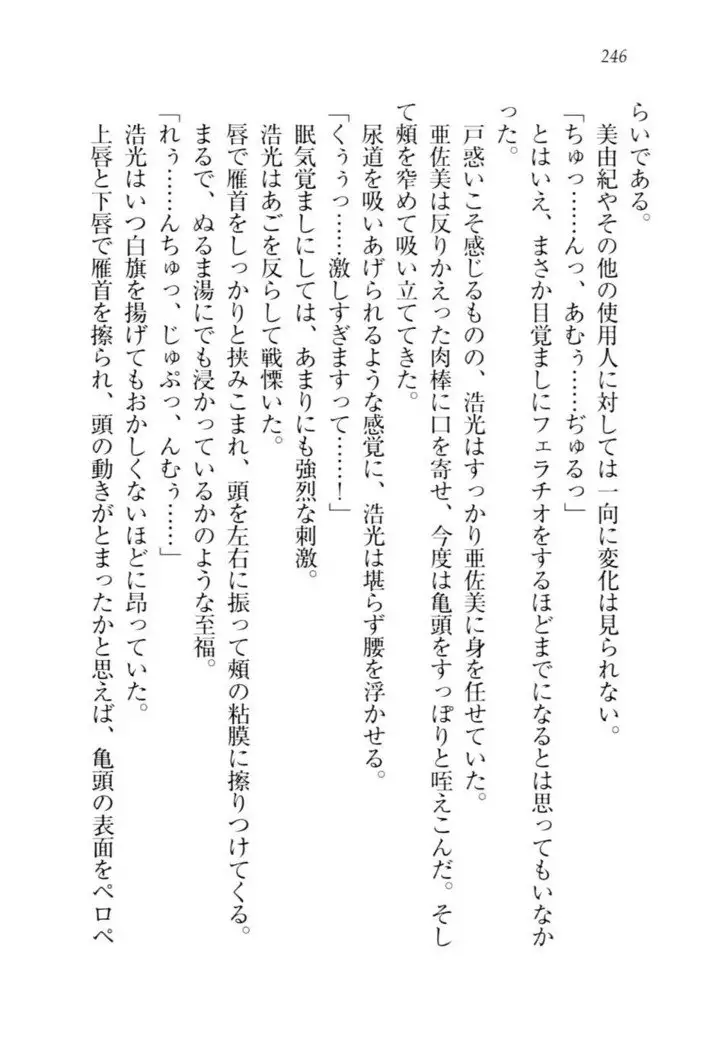 246
らいである。
美由紀やその他の使用人に対しては一向に変化は見られない。
「ちゅっ……んっ、あむぅ……ぢゅるっ」
とはいえ、まさか目覚ましにフェラチオをするほどまでになるとは思ってもいなか
った。
戸惑いこそ感じるものの、浩光はすっかり亜佐美に身を任せていた。
亜佐美は反りかえった肉棒に口を寄せ、今度は亀頭をすっぽりと咥えこんだ。そし
て頬を窄めて吸い立ててきた。
尿道を吸いあげられるような感覚に、浩光は堪らず腰を浮かせる。
「くぅぅっ……激しすぎますって……！」
眠気覚ましにしては、あまりにも強烈な刺激。
浩光はあごを反らして戦慄いた。
唇で雁首をしっかりと挟みこまれ、頭を左右に振って頬の粘膜に擦りつけてくる。
まるで、ぬるま湯にでも浸かっているかのような至福。
「れぅ……んちゅっ、じゅぷっ、んむぅ……」
浩光はいつ白旗を揚げてもおかしくないほどに昂っていた。
上唇と下唇で雁首を擦られ、頭の動きがとまったかと思えば、亀頭の表面をペロペ